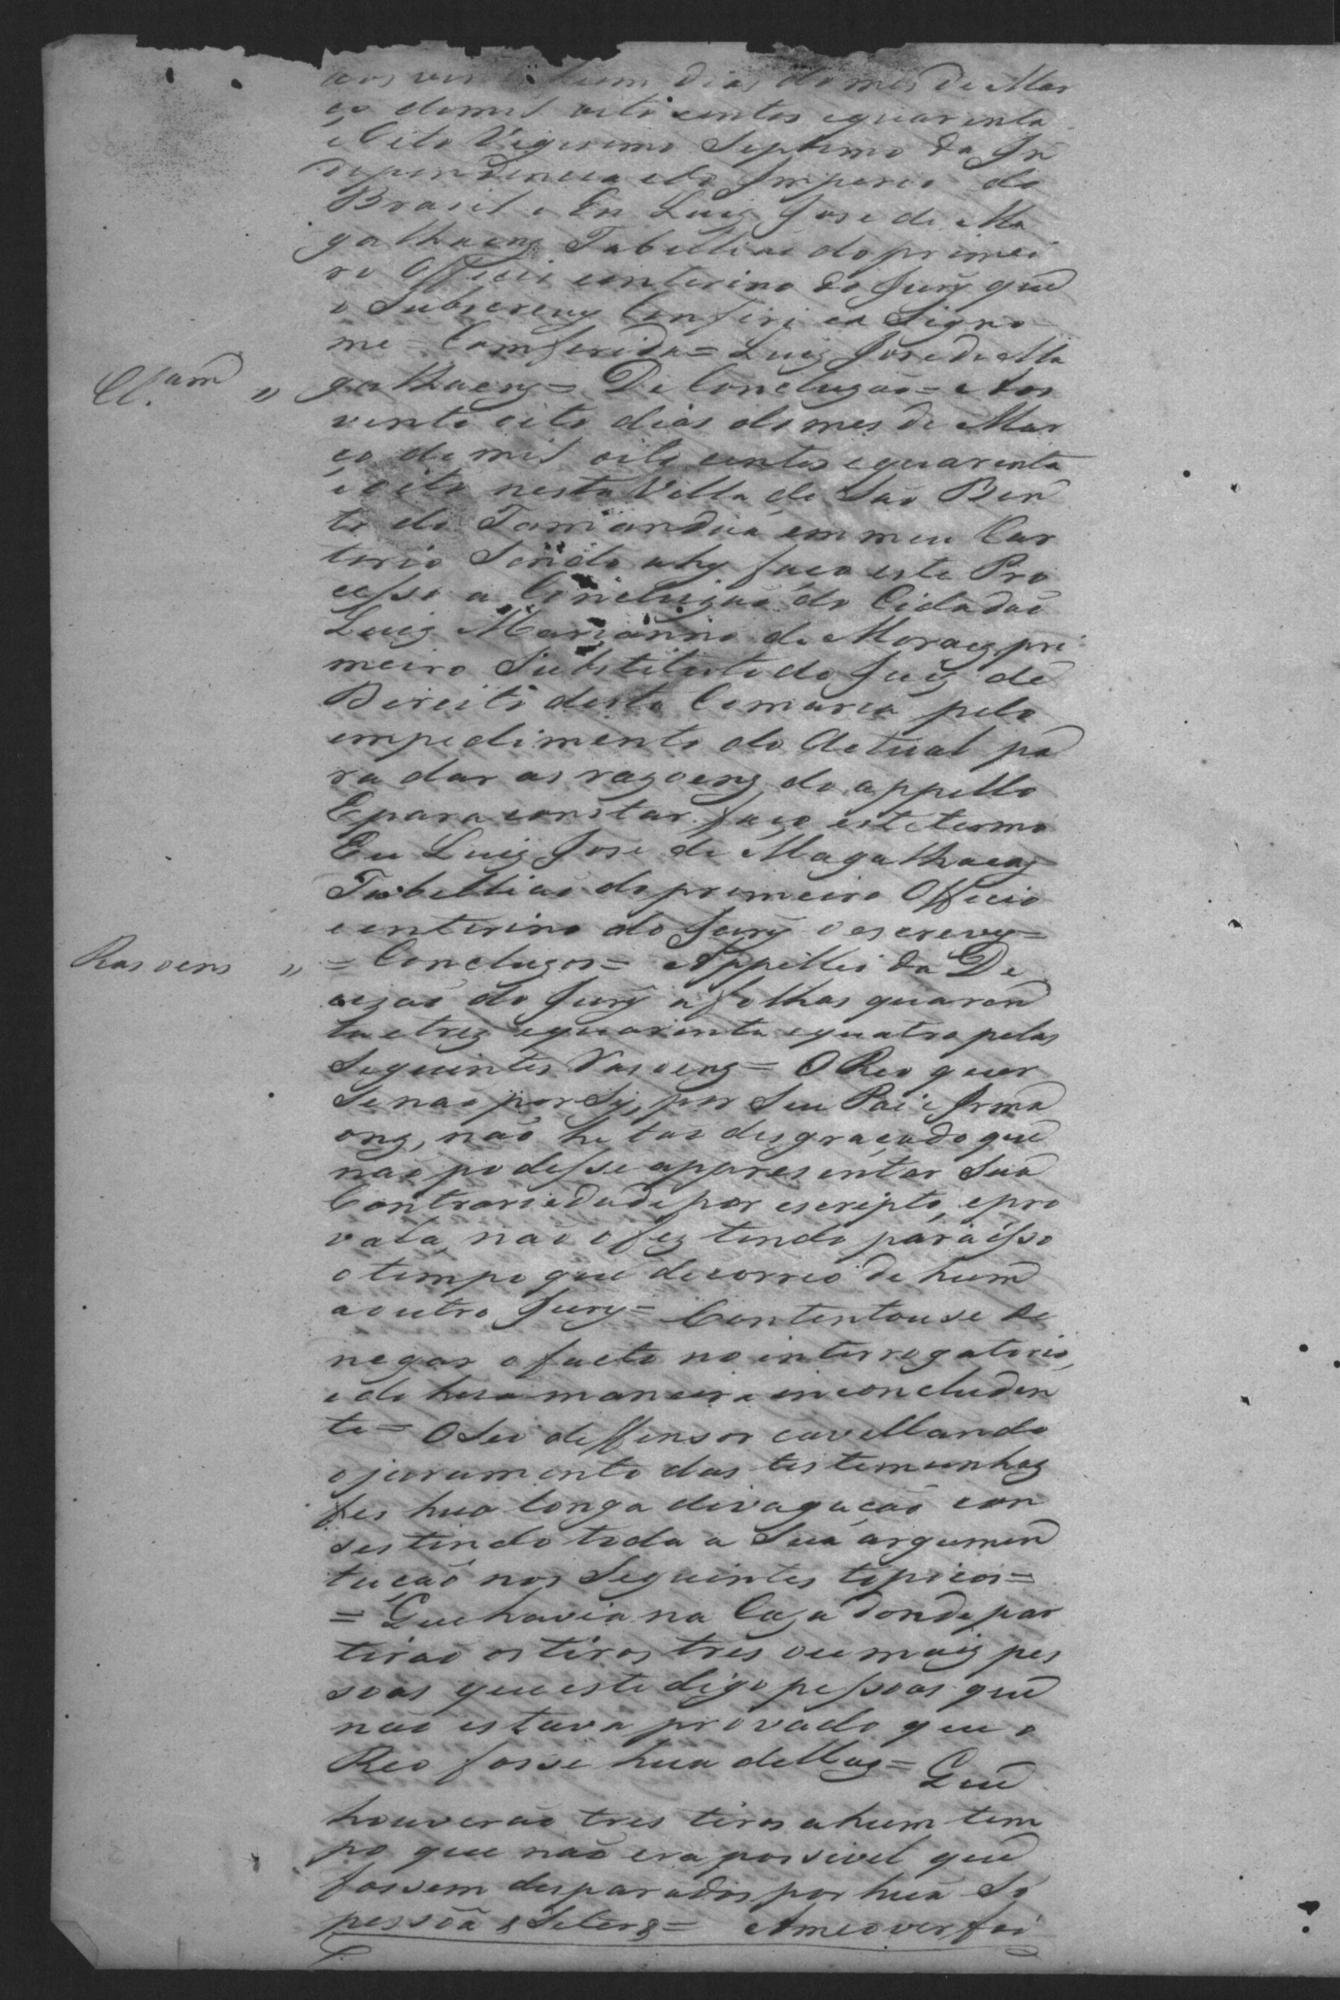 aos vin hum dias do mes de Mar
ço demil oito centos equarenta
e Oito Vigesimo Septimo da In
dependencia edo Imperio do
Brasil e Eu Luiz Jose de Ma
galhaens Tabelliaõ do primei
ro Officio enterino do Jury que
o Subscrevy Conferi ea Signo
me = Comferida = Luiz Jose de Ma
Cl.sam " galhaens = De Concluzaõ = Aos
vinte oito dias do mes de Mar
ço de mil oito centos equarenta
e oito nesta Villa de Saõ Ben
to do Tamanduá em meu Car
torio Sendo ahy faço este Pro
cesso a Concluzaõ do Cidadaõ
Luiz Marianno de Moraes pri
meiro Substituto do Juiz de
Direito desta Comarca pelo
empedimento do Actual pa
ra dar as razoens do appello
Epara constar faço este termo
Eu Luiz Jose de Magalhaens
Tabelliaõ do primeiro Officio
enterino do Jury o escrevy =
Rasoens " = Concluzos = Appellei da De
cizaõ do Jury afolhas quaren
ta etrez equarenta equatro pelas
Seguintes Rasoens = O Reo quer
Senaõ por Sy, por Seu Pai e Irma
ons, naõ he taõ desgraçado que
naõ podesse appresentar Sua
Contrariedade por escripto, epro
vala, naõ ofez tendo para isso
o tempo que decorreo de hum
aoutro Jury = Contentouse de
negar o facto no interrogatorio,
e de hua maneira inconcluden
te = O Seo deffensor cavellando
o juramento das testemunhas
fes hua longa divagaçaõ con
sestindo toda a Sua argumen
taçaõ nos Seguintes topicos =
= Que havia na Caza donde par
tiraõ os tiros tres ou maiz pes
soas que este digo pessoas que
naõ estava provado que o
Reo fosse hua dellas = Que
houveraõ tres tiros ahum tem
po que naõ era possivel que
fossem desparados por hua So
pessõa & Setera = Ameo ver foi